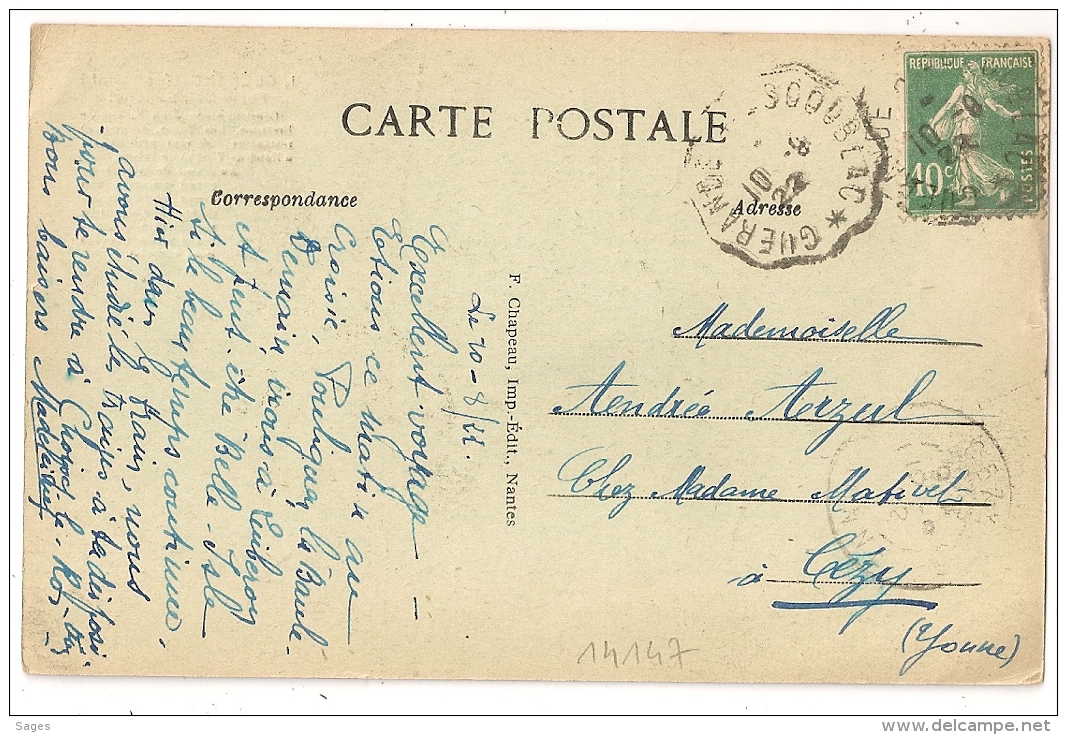 CARTE POSTALE
Correspondance
Adresse
REPUBLIQUE FRANÇAISE
10c
POSTES
GUERANDE
ESCOUBLAC
10 - 8
22
F. Chapeau, Imp.-Édit., Nantes
Le 10-8/22.
Excellent voyage —
Etions ce matin au
Croisic, Pouliguen, la Baule
Demain, irons à Quiberon
et peut-être Belle-Isle
si le beau temps continue.
Hier dans le train, nous
avons étudié les trains à ta disposi-
pour te rendre à
bons baisers Madeleine
Mademoiselle
Andrée Arzul
Chez Madame Mativet
à Cézy
(Yonne)
14147
Sages
www.delcampe.net